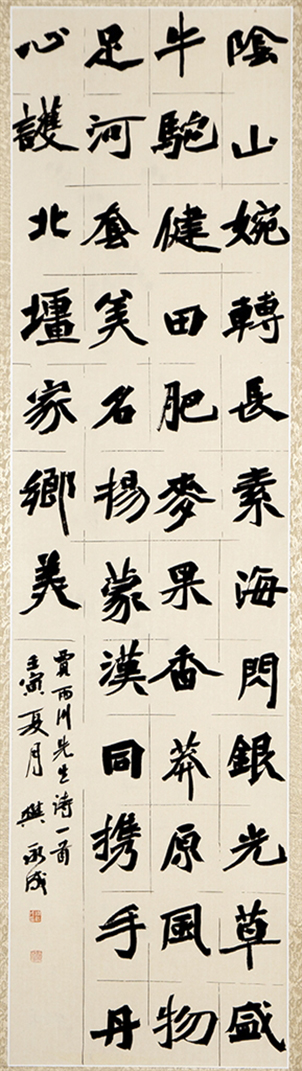 陰山婉轉長素海閃銀光草盛
牛駝健田肥麥果香莽原風物
足河套美名揚蒙漢同携手丹
心護北壃家鄉美
賈西川先生诗一首
壬寅夏月樊